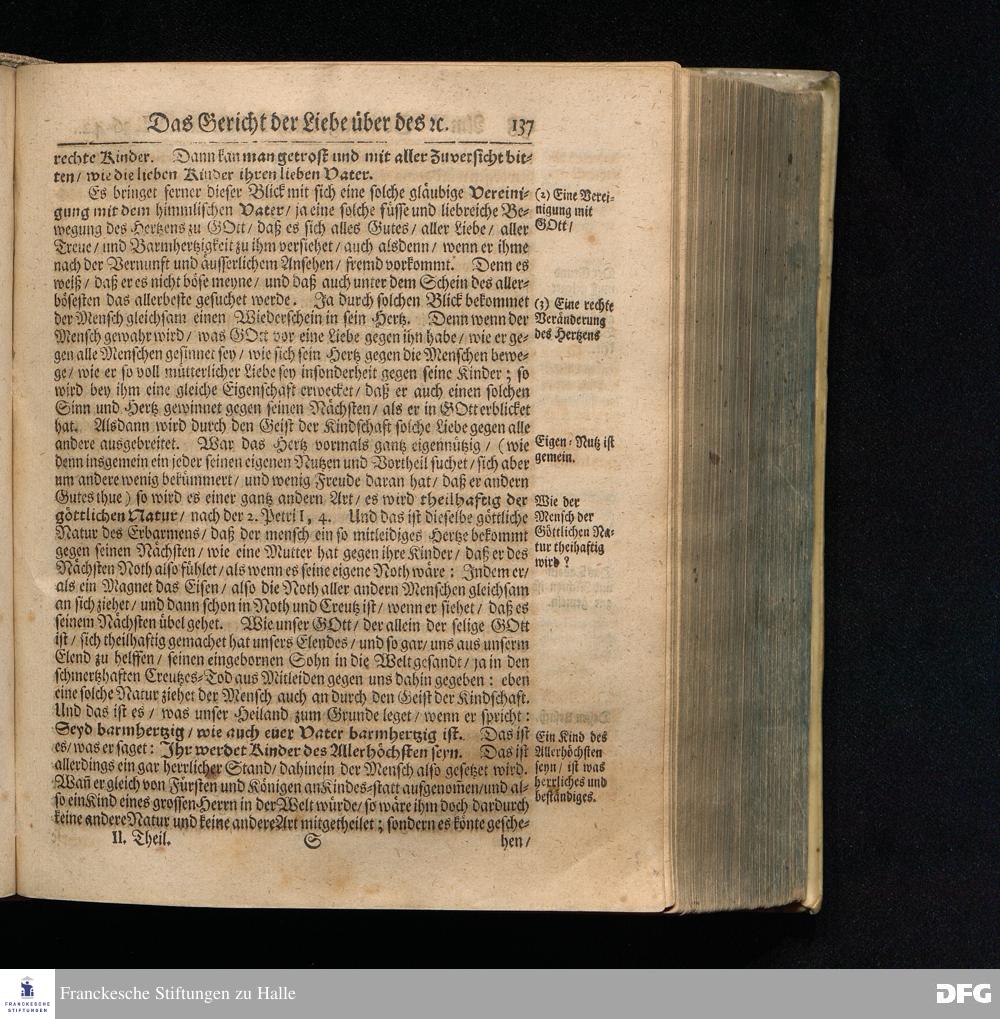 Das Gericht der Liebe über des ꝛc. 137
rechte Kinder. Dann kan man getrost und mit aller Zuversicht bit-
ten/ wie die lieben Kinder ihren lieben Vater.
Es bringet ferner dieser Blick mit sich eine solche gläubige Vereini-
gung mit dem himmlischen Vater/ ja eine solche süsse und liebreiche Be-
wegung des Hertzens zu GOtt/ daß es sich alles Gutes/ aller Liebe/ aller
Treue/ und Barmhertzigkeit zu ihm versiehet/ auch alsdenn/ wenn er ihme
nach der Vernunft und äusserlichem Ansehen/ fremd vorkommt. Denn es
weiß/ daß er es nicht böse meyne/ und daß auch unter dem Schein des aller-
bösesten das allerbeste gesuchet werde. Ja durch solchen Blick bekommet
der Mensch gleichsam einen Wiederschein in sein Hertz. Denn wenn der
Mensch gewahr wird/ was GOtt vor eine Liebe gegen ihn habe/ wie er ge-
gen alle Menschen gesinnet sey/ wie sich sein Hertz gegen die Menschen bewe-
ge/ wie er so voll mütterlicher Liebe sey insonderheit gegen seine Kinder; so
wird bey ihm eine gleiche Eigenschaft erwecket/ daß er auch einen solchen
Sinn und Hertz gewinnet gegen seinen Nächsten/ als er in GOtt erblicket
hat. Alsdann wird durch den Geist der Kindschaft solche Liebe gegen alle
andere ausgebreitet. War das Hertz vormals gantz eigennützig/ (wie
denn insgemein ein jeder seinen eigenen Nutzen und Vortheil suchet/ sich aber
um andere wenig bekümmert/ und wenig Freude daran hat/ daß er andern
Gutes thue) so wird es einer gantz andern Art/ es wird theilhaftig der
göttlichen Natur/ nach der 2. Petri I, 4. Und das ist dieselbe göttliche
Natur des Erbarmens/ daß der mensch ein so mitleidiges Hertze bekommt
gegen seinen Nächsten/ wie eine Mutter hat gegen ihre Kinder/ daß er des
Nächsten Noth also fühlet/ als wenn es seine eigene Noth wäre: Indem er/
als ein Magnet das Eisen/ also die Noth aller andern Menschen gleichsam
an sich ziehet/ und dann schon in Noth und Creutz ist/ wenn er siehet/ daß es
seinem Nächsten übel gehet. Wie unser GOtt/ der allein der selige GOtt
ist/ sich theilhaftig gemachet hat unsers Elendes/ und so gar/ uns aus unserm
Elend zu helffen/ seinen eingebornen Sohn in die Welt gesandt/ ja in den
schmertzhaften Creutzes-Tod aus Mitleiden gegen uns dahin gegeben: eben
eine solche Natur ziehet der Mensch auch an durch den Geist der Kindschaft.
Und das ist es/ was unser Heiland zum Grunde leget/ wenn er spricht:
Seyd barmhertzig/ wie auch euer Vater barmhertzig ist. Das ist
es/ was er saget: Ihr werdet Kinder des Allerhöchsten seyn. Das ist
allerdings ein gar herrlicher Stand/ dahinein der Mensch also gesetzet wird.
Wañ er gleich von Fürsten und Königen an Kindes-statt aufgenom̃en/ und al-
so ein Kind eines grossen Herrn in der Welt würde/ so wäre ihm doch dardurch
keine andere Natur und keine andere Art mitgetheilet; sondern es könte gesche-
II. Theil. S hen/
(2) Eine Verei-
nigung mit
GOtt/
(3) Eine rechte
Veränderung
des Hertzens
Eigen-Nutz ist
gemein.
Wie der
Mensch der
Göttlichen Na-
tur theihaftig
wird?
Ein Kind des
Allerhöchsten
seyn/ ist was
herrliches und
beständiges.
FRANCKESCHE
STIFTUNGEN
Franckesche Stiftungen zu Halle
DFG